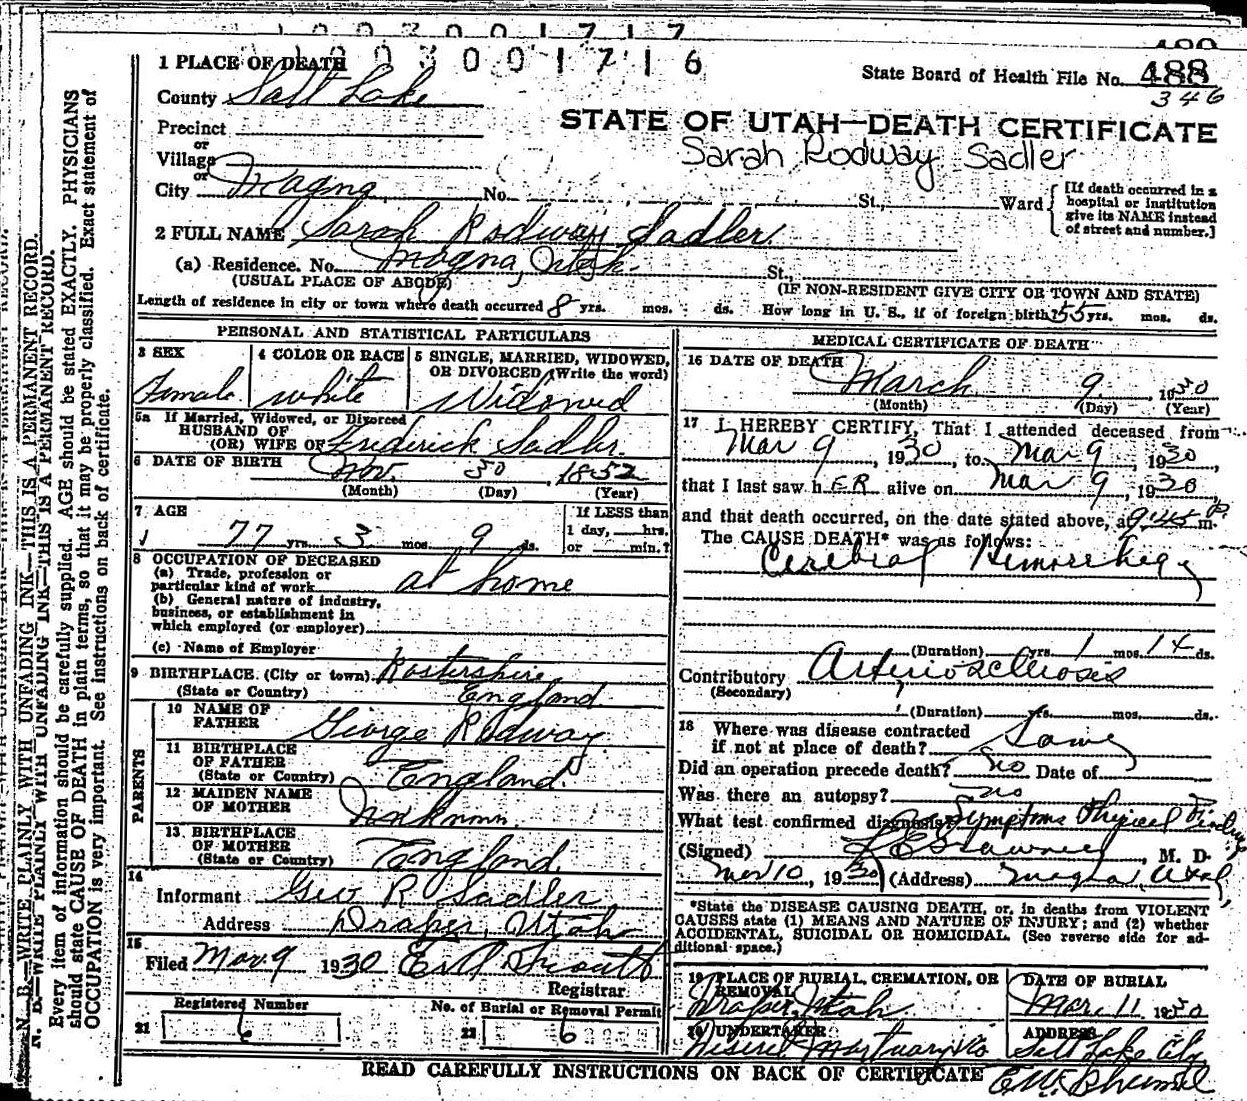 1 0 0 3 0 0 1 7 1 7
1 0 0 3 0 0 1 7 1 6
489
State Board of Health File No. 488
346
1 PLACE OF DEATH
County Salt Lake
STATE OF UTAH—DEATH CERTIFICATE
Precinct
Sarah Rodway Sadler
or
Village
or
City Magna No. St., Ward
[If death occurred in a hospital or institution give its NAME instead of street and number.]
2 FULL NAME Sarah Rodway Sadler
(a) Residence. No. Magna, Utah St.,
(USUAL PLACE OF ABODE) (IF NON-RESIDENT GIVE CITY OR TOWN AND STATE)
Length of residence in city or town where death occurred 8 yrs. mos. ds. How long in U. S., if of foreign birth? 55 yrs. mos. ds.
PERSONAL AND STATISTICAL PARTICULARS
3 SEX Female
4 COLOR OR RACE white
5 SINGLE, MARRIED, WIDOWED, OR DIVORCED (Write the word) Widowed
5a If Married, Widowed, or Divorced
HUSBAND OF
(OR) WIFE OF Frederick Sadler
6 DATE OF BIRTH Nov. 30 1852
(Month) (Day) (Year)
7 AGE
77 yrs. 3 mos. 9 ds.
If LESS than
1 day, hrs.
or min.?
8 OCCUPATION OF DECEASED
(a) Trade, profession or
particular kind of work at home
(b) General nature of industry,
business, or establishment in
which employed (or employer)
(c) Name of Employer
9 BIRTHPLACE (City or town)
(State or Country) England
PARENTS
10 NAME OF FATHER George Rodway
11 BIRTHPLACE OF FATHER (State or Country) England
12 MAIDEN NAME OF MOTHER Unknown
13 BIRTHPLACE OF MOTHER (State or Country) England
14
Informant Geo R Sadler
Address Draper, Utah
15
Filed Mar. 9 1930
Registrar
Registered Number
21 6
No. of Burial or Removal Permit
22 6
MEDICAL CERTIFICATE OF DEATH
16 DATE OF DEATH
March 9, 1930
(Month) (Day) (Year)
17 I HEREBY CERTIFY, That I attended deceased from
Mar 9, 1930, to Mar 9, 1930,
that I last saw hER alive on Mar 9, 1930,
and that death occurred, on the date stated above, at 9:45 P. m.
The CAUSE DEATH* was as follows:
Cerebral Hemorrhage
(Duration) yrs. 1 mos. 14 ds.
Contributory Arteriosclerosis
(Secondary)
(Duration) yrs. mos. ds.
18 Where was disease contracted
if not at place of death? Same
Did an operation precede death? no Date of
Was there an autopsy? no
What test confirmed diagnosis? Symptoms Physical Findings
(Signed) , M. D.
Mar 10, 1930 (Address) Magna, Utah
*State the DISEASE CAUSING DEATH, or, in deaths from VIOLENT
CAUSES state (1) MEANS AND NATURE OF INJURY; and (2) whether
ACCIDENTAL, SUICIDAL OR HOMICIDAL. (See reverse side for ad-
ditional space.)
19 PLACE OF BURIAL, CREMATION, OR REMOVAL
Draper, Utah
DATE OF BURIAL
Mar. 11 1930
20 UNDERTAKER
Deseret Mortuary Co
ADDRESS
Salt Lake City
READ CAREFULLY INSTRUCTIONS ON BACK OF CERTIFICATE
N. B.—WRITE PLAINLY WITH UNFADING INK—THIS IS A PERMANENT RECORD.
Every item of information should be carefully supplied. AGE should be stated EXACTLY. PHYSICIANS
should state CAUSE OF DEATH in plain terms, so that it may be properly classified. Exact statement of
OCCUPATION is very important. See instructions on back of certificate.